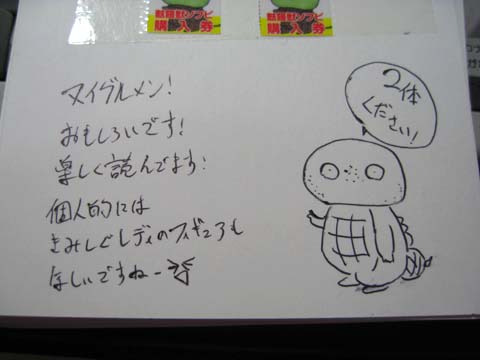 購入券
購入券
ヌイグルメン!
おもしろいです!
楽しく読んでます!
個人的には
きみしぐレディのフィギュアも
ほしいですねー
2体
ください!